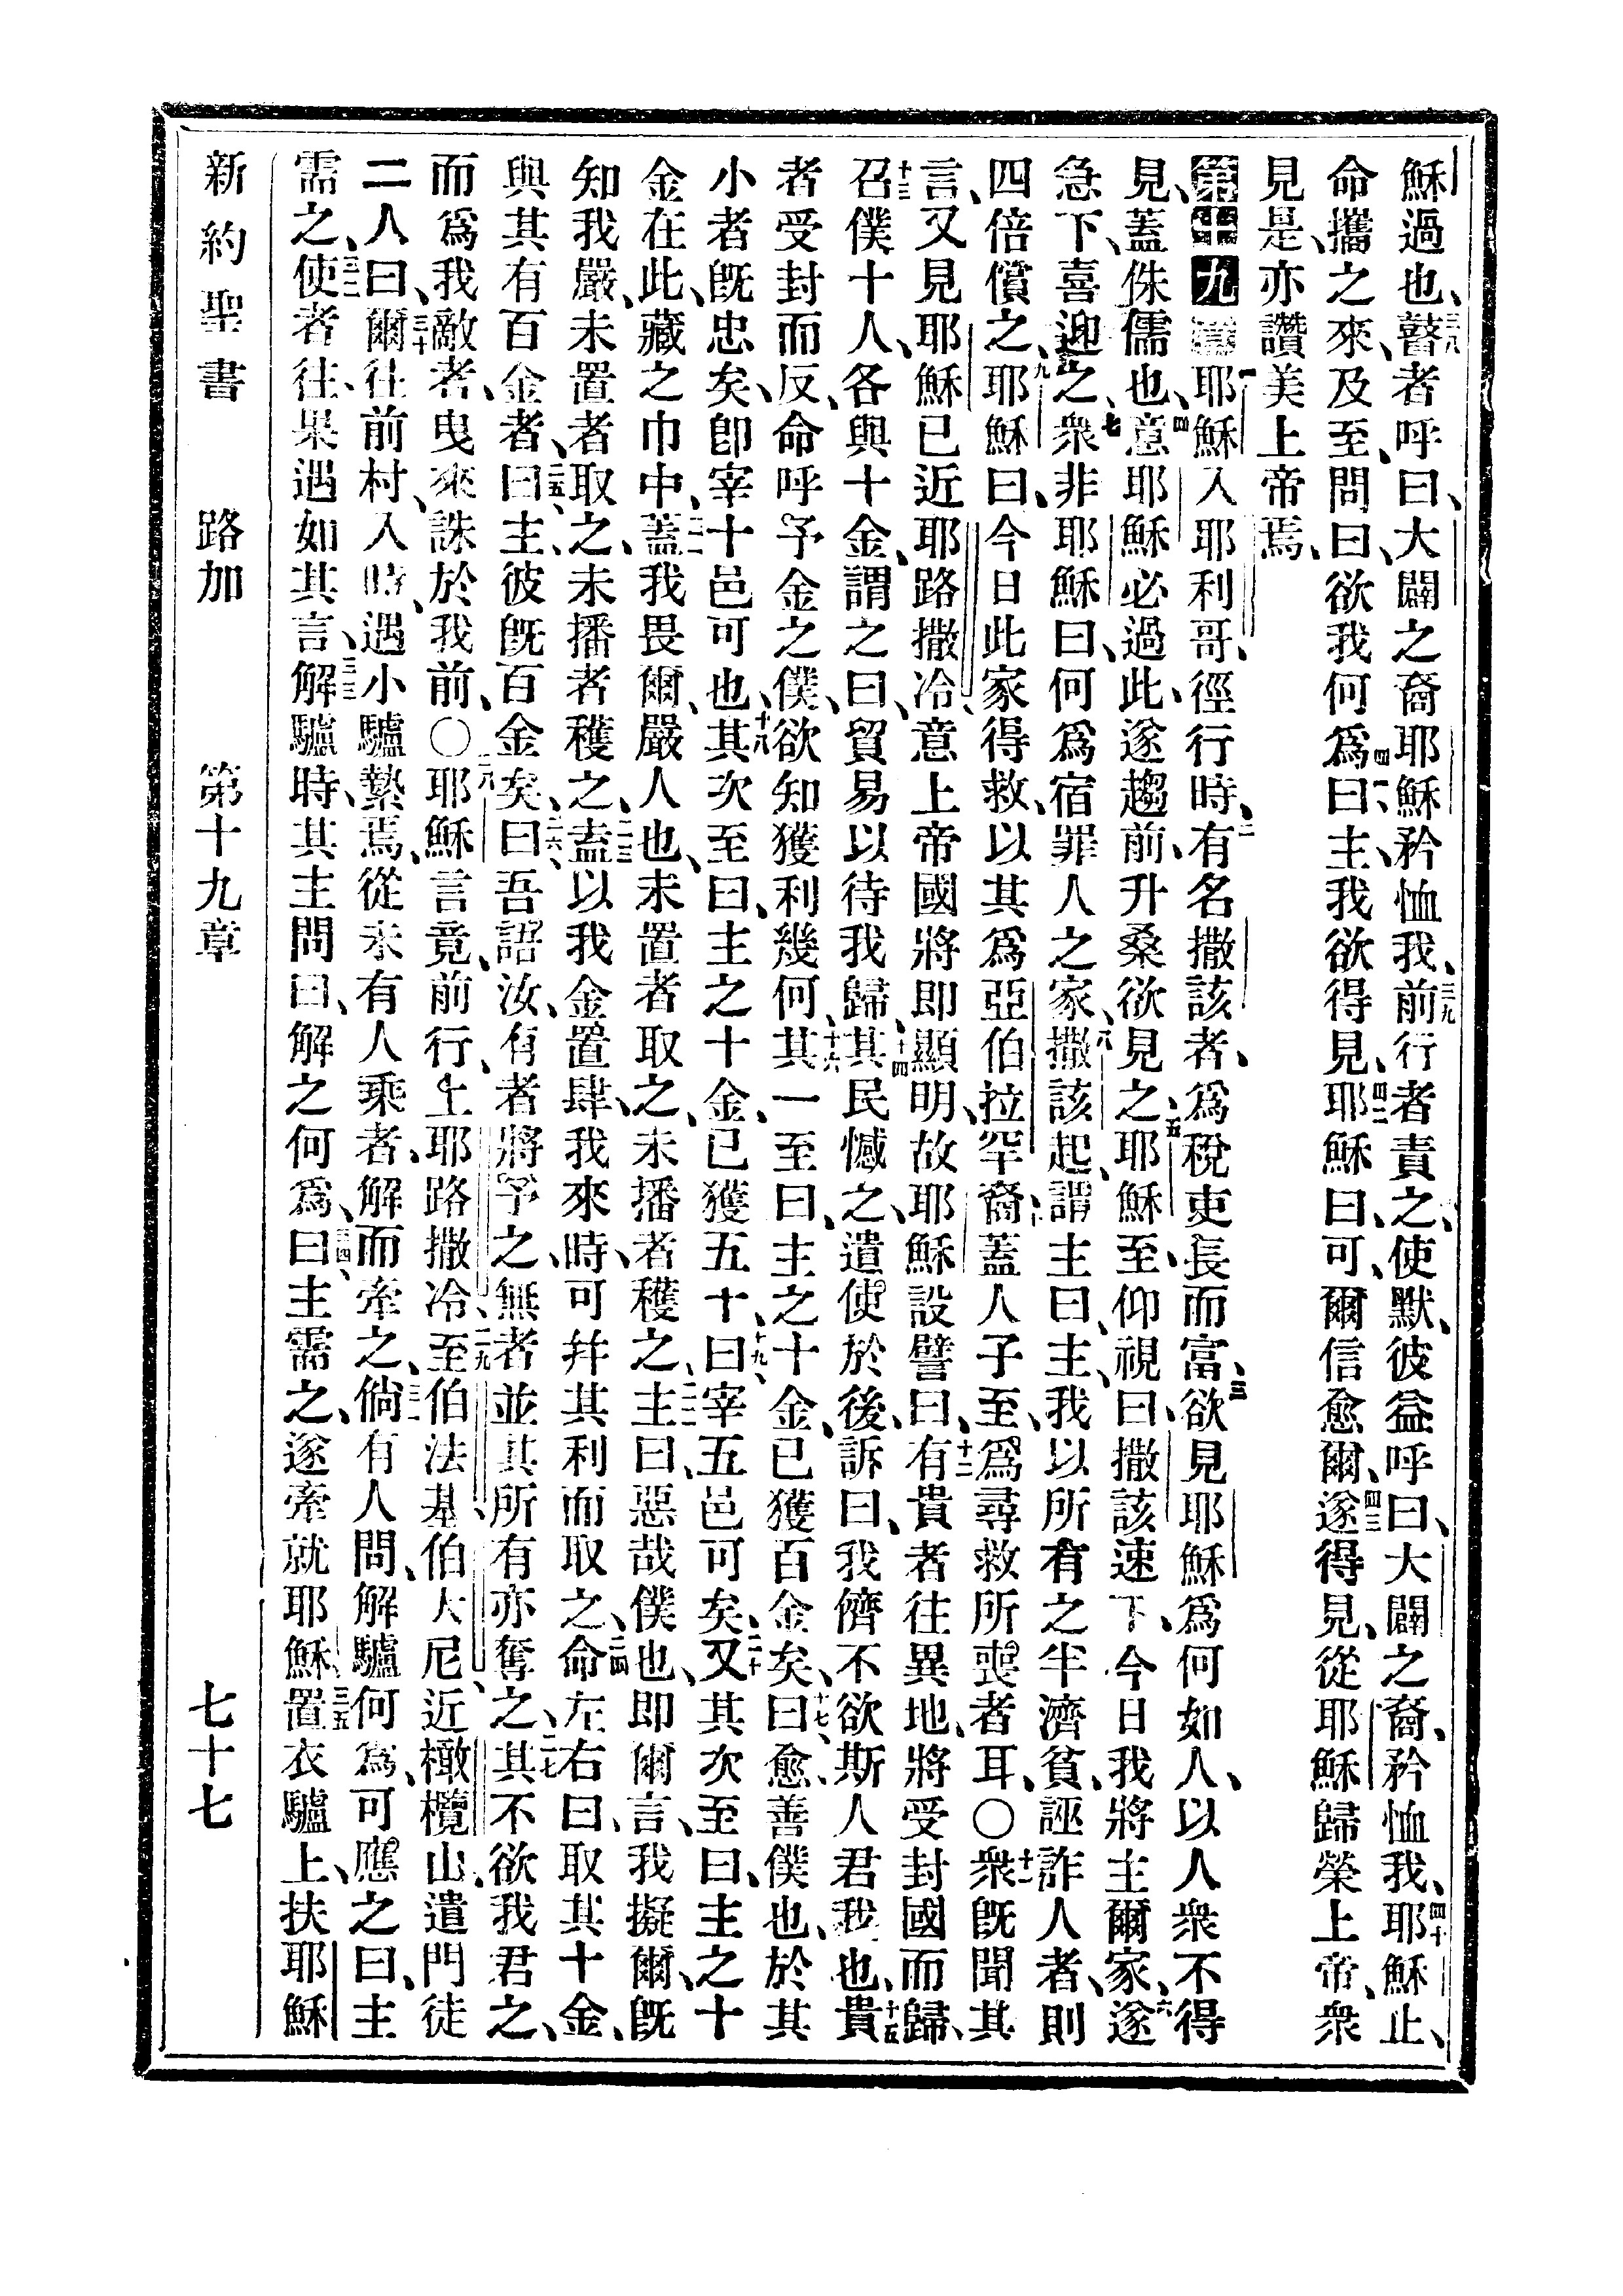 穌過也、三八瞽者呼曰、大闢之裔耶穌矜恤我、三九前行者責之、使默、彼益呼曰、大闢之裔、矜恤我、四十耶穌止、
命攜之來、及至、問曰、欲我何爲、四一曰、主、我欲得見、四二耶穌曰、可、爾信愈爾、四三遂得見、從耶穌歸榮上帝、衆
見是、亦讚美上帝焉、
第十九章一耶穌入耶利哥、徑行時、二有名撒該者、爲稅吏長而富、三欲見耶穌爲何如人、以人衆不得
見、蓋侏儒也、四意耶穌必過此、遂趨前、升桑欲見之、五耶穌至、仰視曰、撒該速下、今日我將主爾家、六遂
急下、喜迎之、七衆非耶穌曰、何爲宿罪人之家、八撒該起、謂主曰、主、我以所有之半濟貧、誣詐人者、則
四倍償之、九耶穌曰、今日此家得救、以其爲亞伯拉罕裔、十蓋人子至、爲尋救所喪者耳、〇十一衆旣聞其
言、又見耶穌已近耶路撒冷、意上帝國將即顯明、故耶穌設譬曰、十二有貴者往異地、將受封國而歸、
十三召僕十人、各與十金、謂之曰、貿易以待我歸、十四其民憾之、遣使於後、訴曰、我儕不欲斯人君我也、十五貴
者受封而反、命呼予金之僕、欲知獲利幾何、十六其一至曰、主之十金、已獲百金矣、十七曰、愈善僕也、於其
小者旣忠矣、卽宰十邑可也、十八其次至曰、主之十金、已獲五十、十九曰、宰五邑可矣、二十又其次至曰、主之十
金在此、藏之巾中、二一蓋我畏爾、嚴人也、未置者取之、未播者穫之、二二主曰、惡哉僕也、即爾言、我擬爾、旣
知我嚴、未置者取之、未播者穫之、二三盍以我金置肆、我來時、可幷其利而取之、二四命左右曰、取其十金、
與其有百金者、二五曰、主、彼旣百金矣、二六曰、吾語汝、有者將予之、無者並其所有亦奪之、二七其不欲我君之、
而爲我敵者、曳來誅於我前、〇二八耶穌言竟、前行、上耶路撒冷、二九至伯法基、伯大尼、近橄欖山、遣門徒
二人曰、三十爾往前村、入時、遇小驢縶焉、從未有人乘者、解而牽之、三一倘有人問、解驢何爲、可應之曰、主
需之、三二使者往、果遇如其言、三三解驢時、其主問曰、解之何爲、三四曰、主需之、遂牽就耶穌、三五置衣驢上、扶耶穌
新約聖書 路加 第十九章 七十七